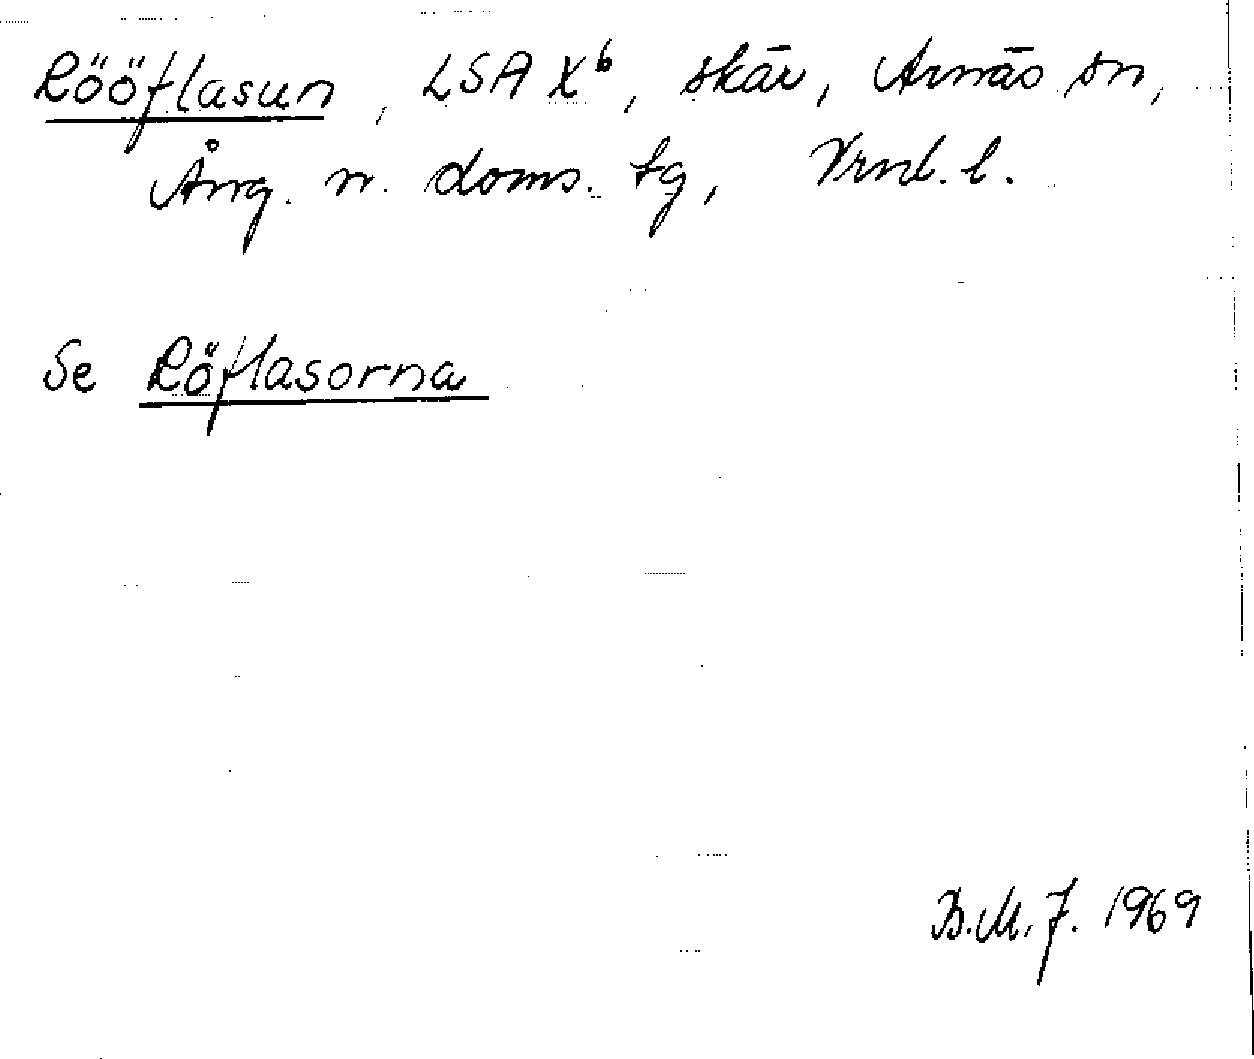 Rööflasun, LSA X<sup>b</sup>, skär, Arnäs sn,
Ång. n. doms. tg, Vrnl. l.
Se Röflasorna
B.M.J. 1969